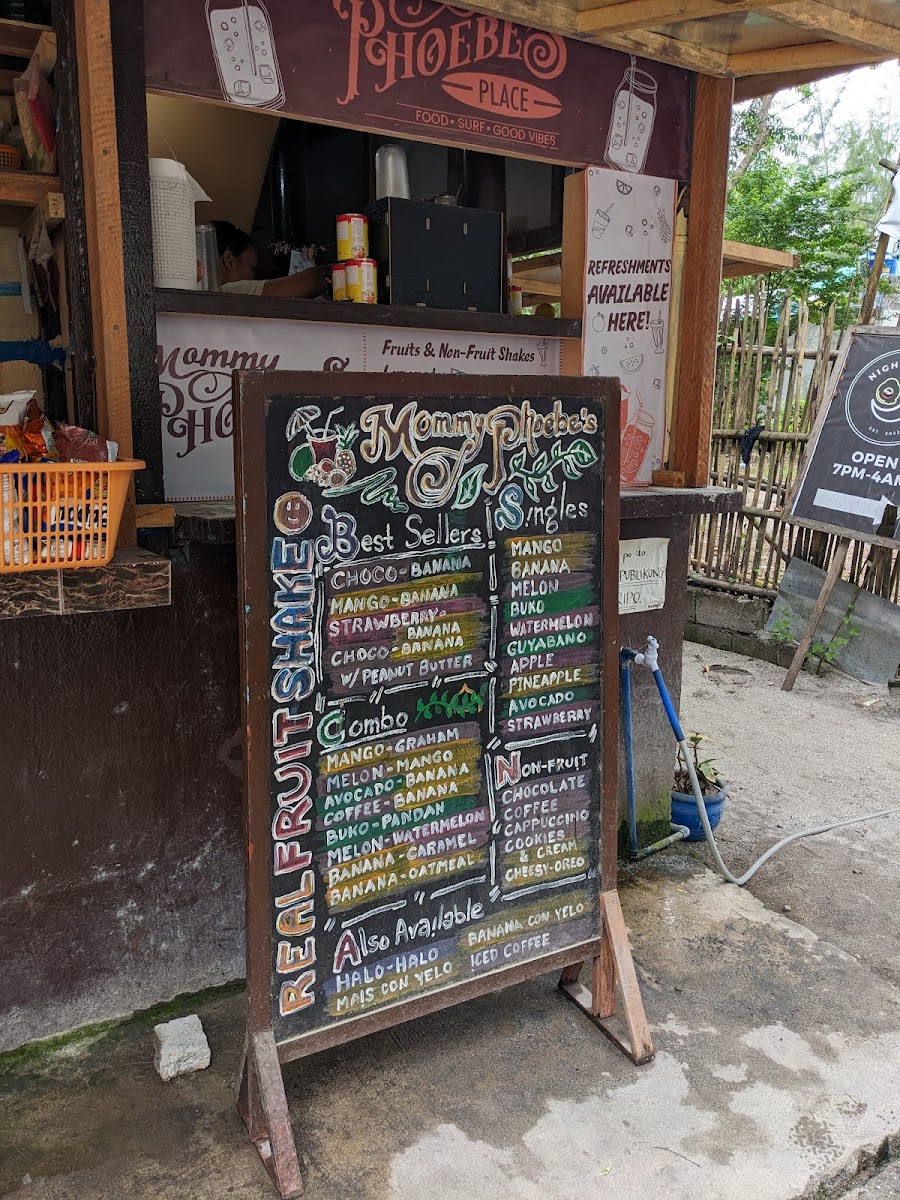 PHOEBE'S
PLACE
FOOD • SURF • GOOD VIBES
REFRESHMENTS
AVAILABLE
HERE!
Mommy
Fruits & Non-Fruit Shakes
Mommy Phoebe's
REAL FRUIT SHAKE
Best Sellers
CHOCO-BANANA
MANGO-BANANA
STRAWBERRY-
BANANA
CHOCO-BANANA
W/ PEANUT BUTTER
Combo
MANGO-GRAHAM
MELON-MANGO
AVOCADO-BANANA
COFFEE-BANANA
BUKO-PANDAN
MELON-WATERMELON
BANANA-CARAMEL
BANANA-OATMEAL
Singles
MANGO
BANANA
MELON
BUKO
WATERMELON
GUYABANO
APPLE
PINEAPPLE
AVOCADO
STRAWBERRY
NON-FRUIT
CHOCOLATE
COFFEE
CAPPUCCINO
COOKIES
& CREAM
CHEESY-OREO
Also Available
HALO-HALO
MAIS CON YELO
BANANA CON YELO
ICED COFFEE
PUBLIKONG
RIPO.
NIGH
OPEN
7PM-4A